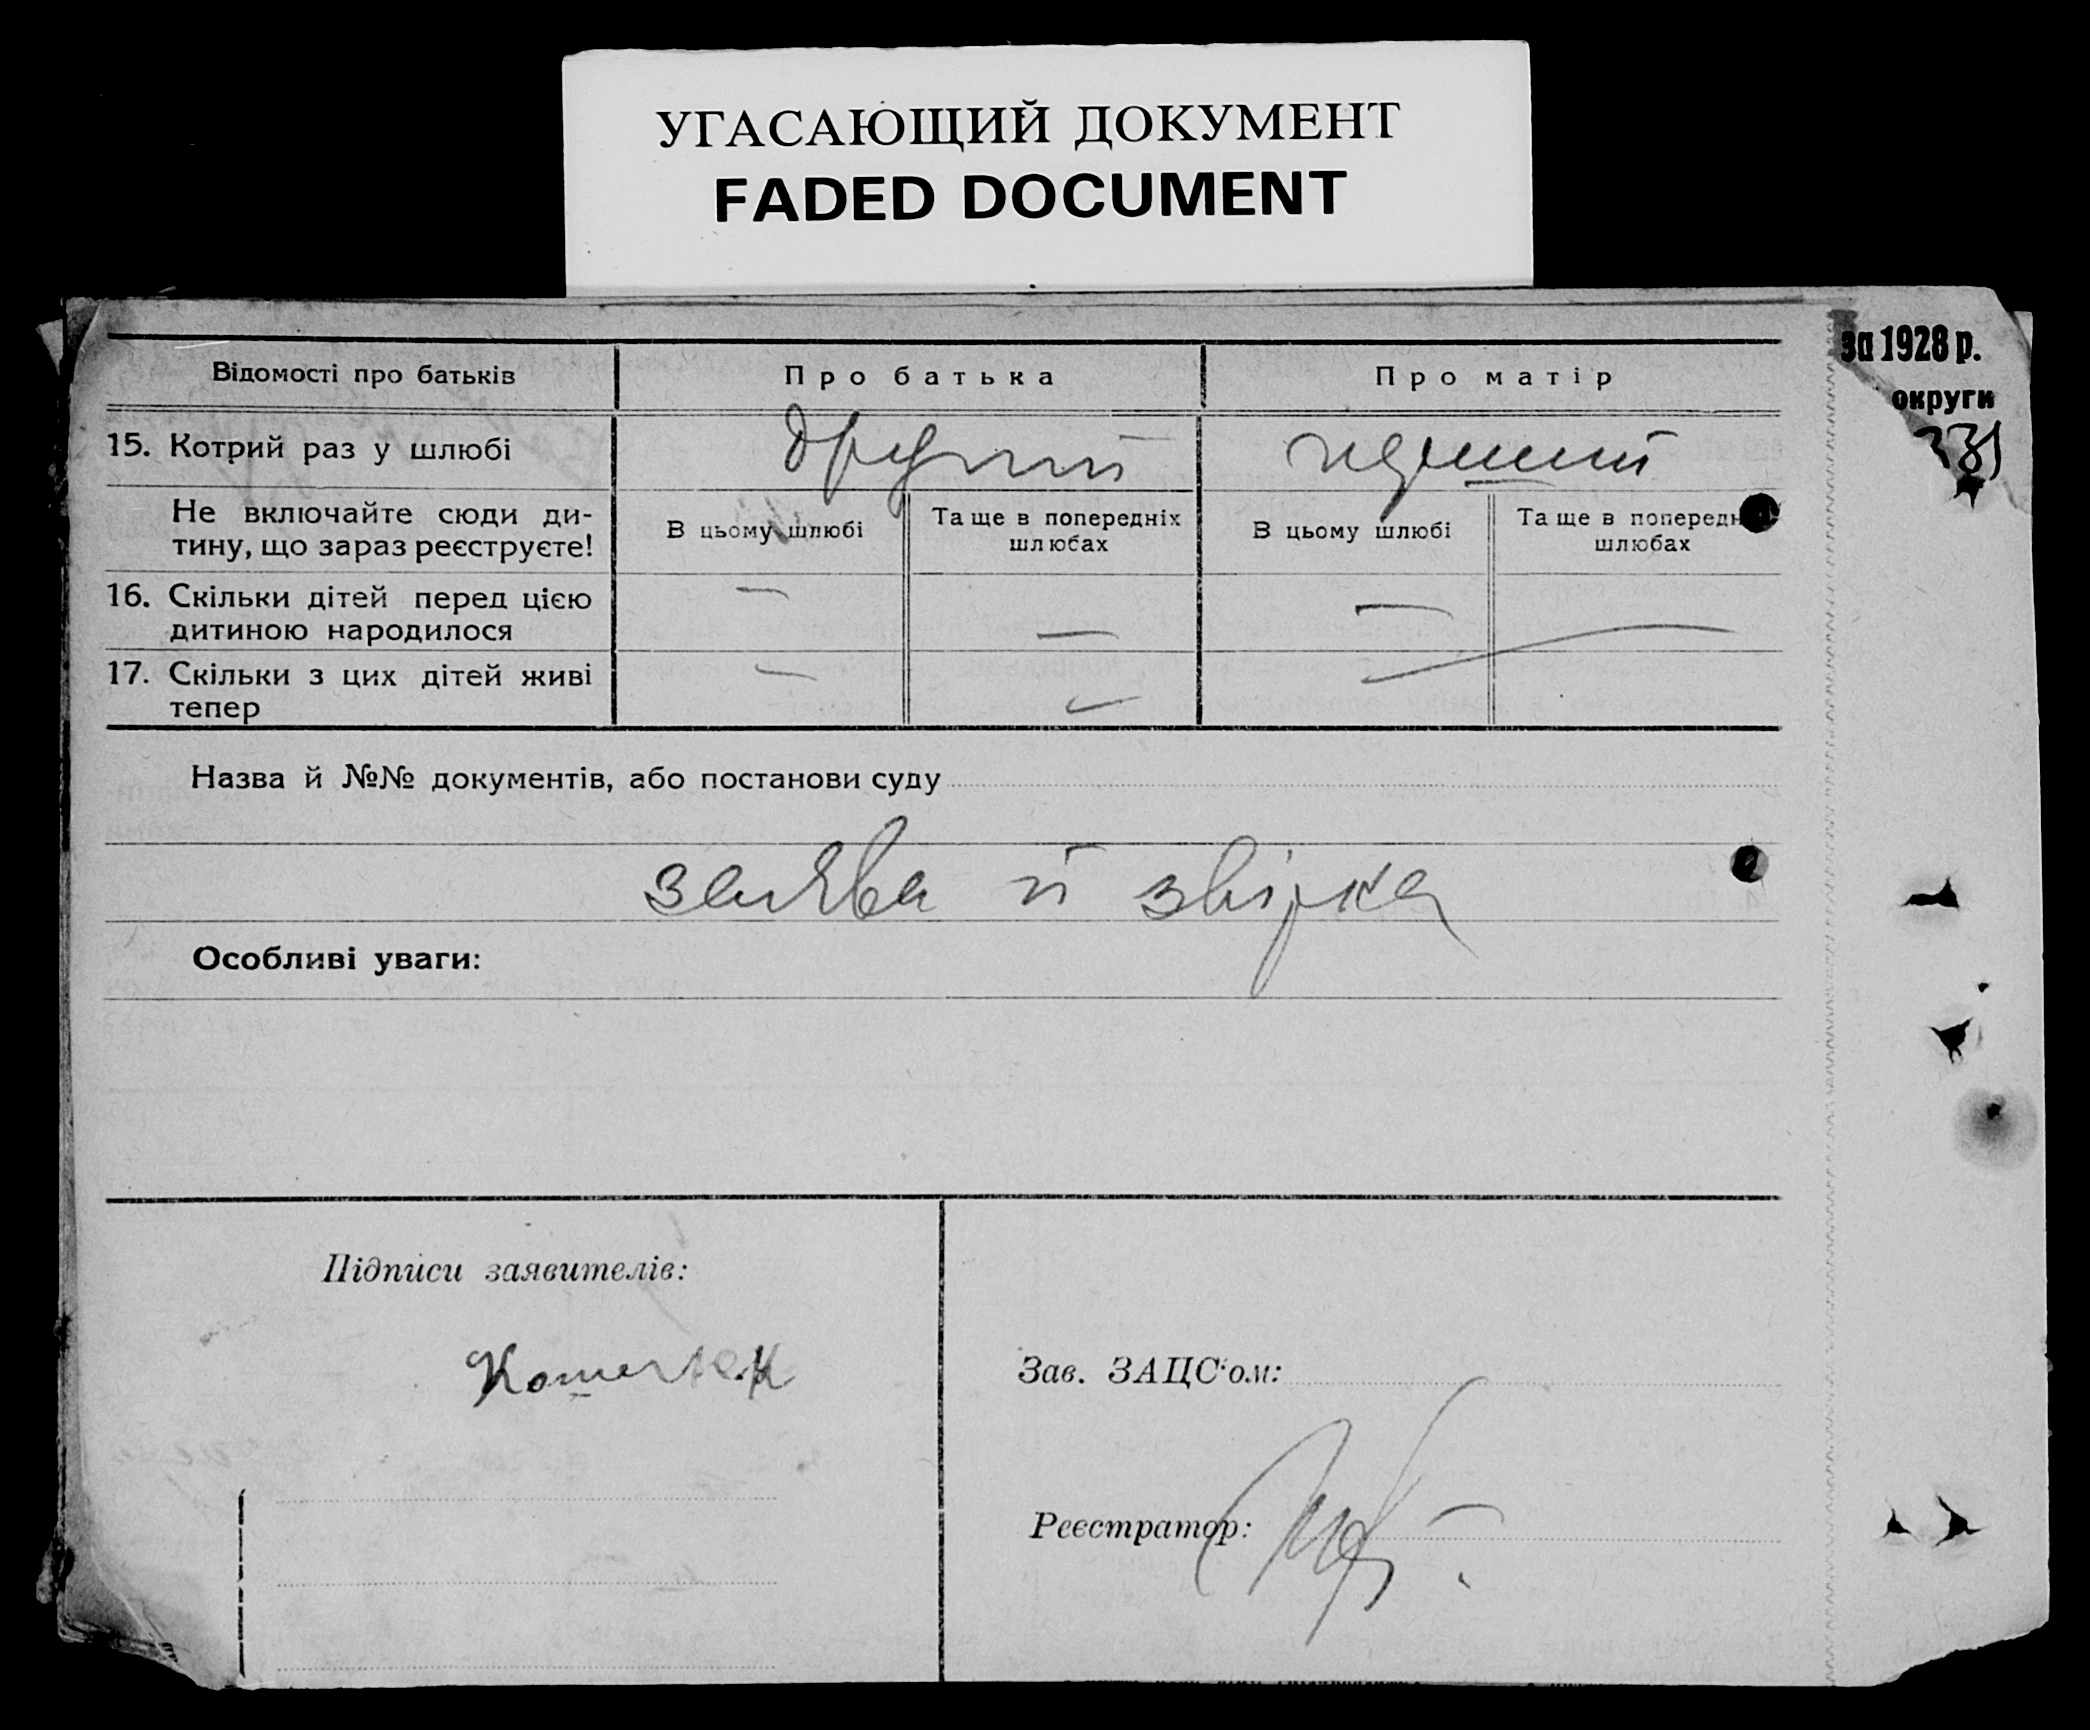 УГАСАЮЩИЙ ДОКУМЕНТ
FADED DOCUMENT
за 1928 р.
округи
Відомості про батьків
Про батька
Про матір
15. Котрий раз у шлюбі
другий
перший
Не включайте сюди ди-
тину, що зараз реєструєте!
В цьому шлюбі
Та ще в попередніх
шлюбах
В цьому шлюбі
Та ще в попередн
шлюбах
16. Скільки дітей перед цією
дитиною народилося
—
—
—
17. Скільки з цих дітей живі
тепер
—
—
—
Назва й №№ документів, або постанови суду
заява й звірка
Особливі уваги:
Підписи заявителів:
Зав. ЗАЦС'ом:
Реєстратор: